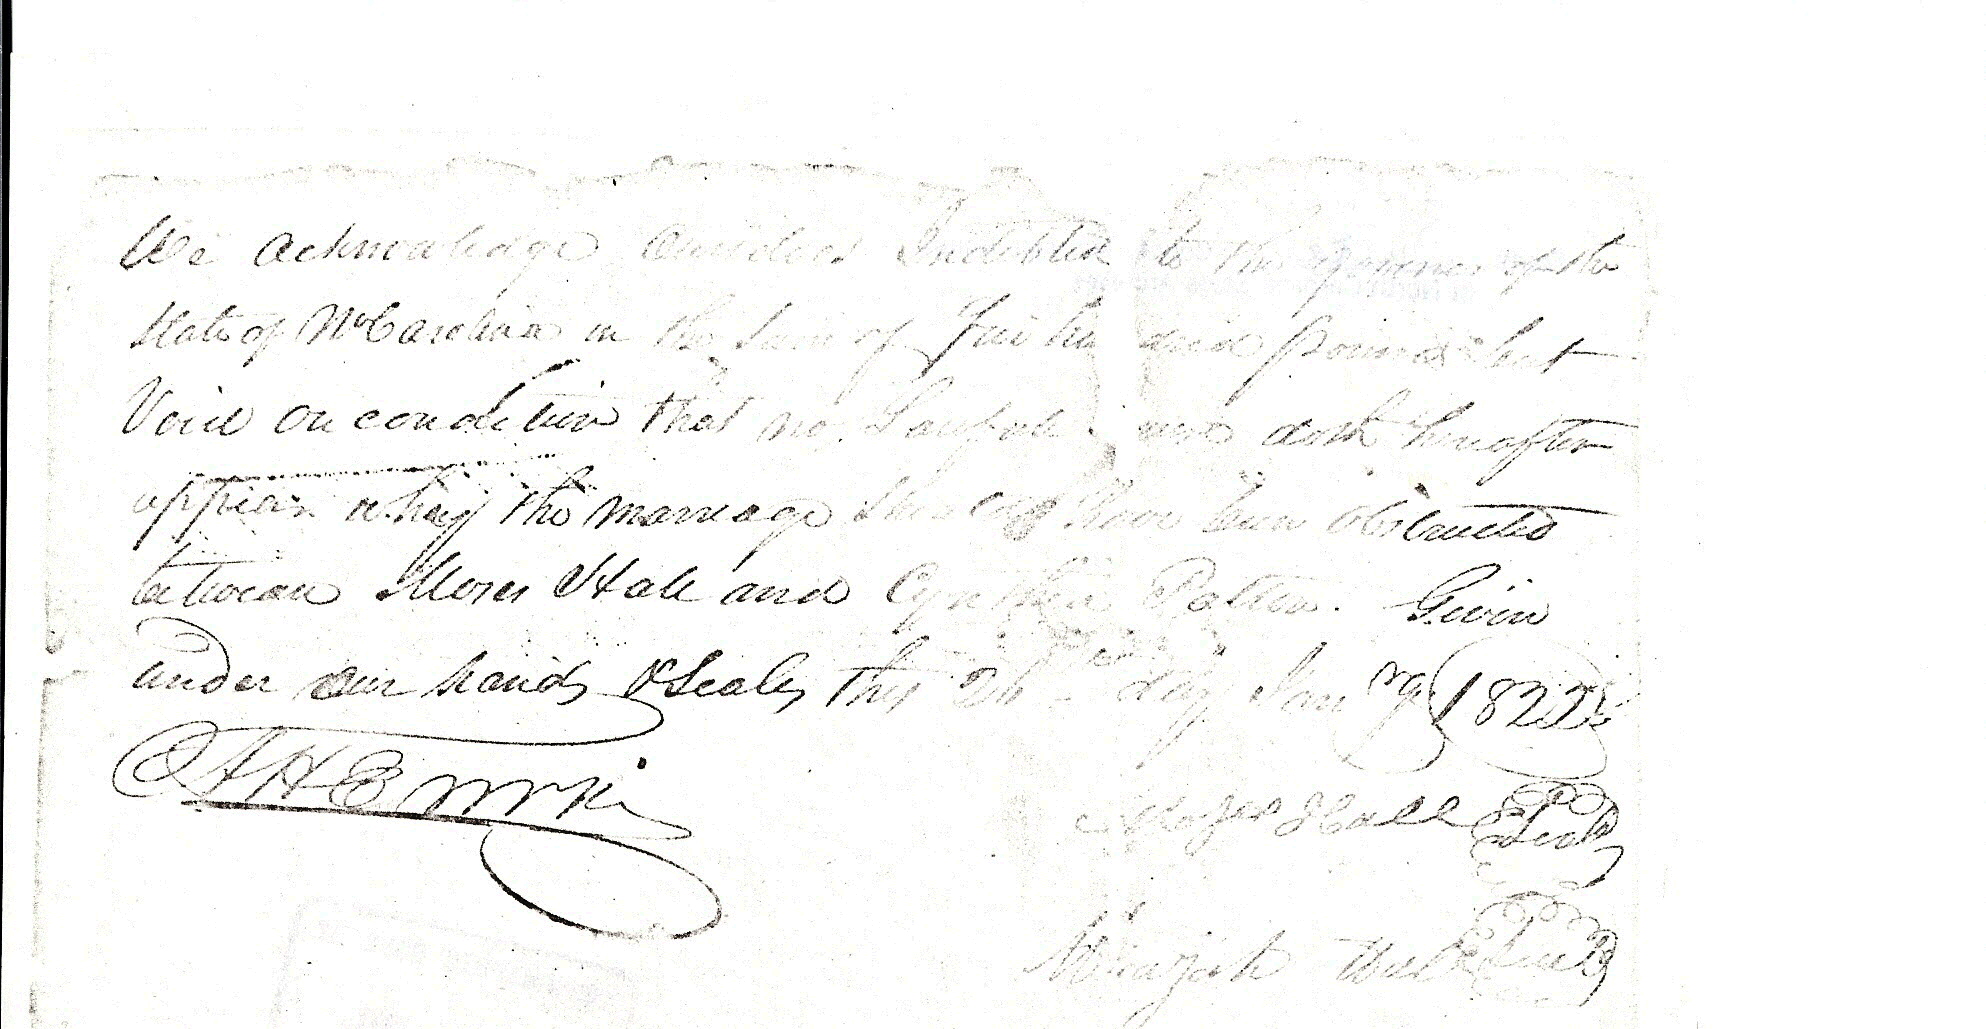 We acknowledge ourselves Indebted to the governor of the
State of No Carolina in the Sum of five hundred pounds but
Void on condition that no Lawful cause doth hereafter
appear why the marriage should have been obstructed
between Moses Hall and Cynthia . Given
under our hands & Seals this 26 day Jany 1822
Moses Hall Seal
Micajah Seal